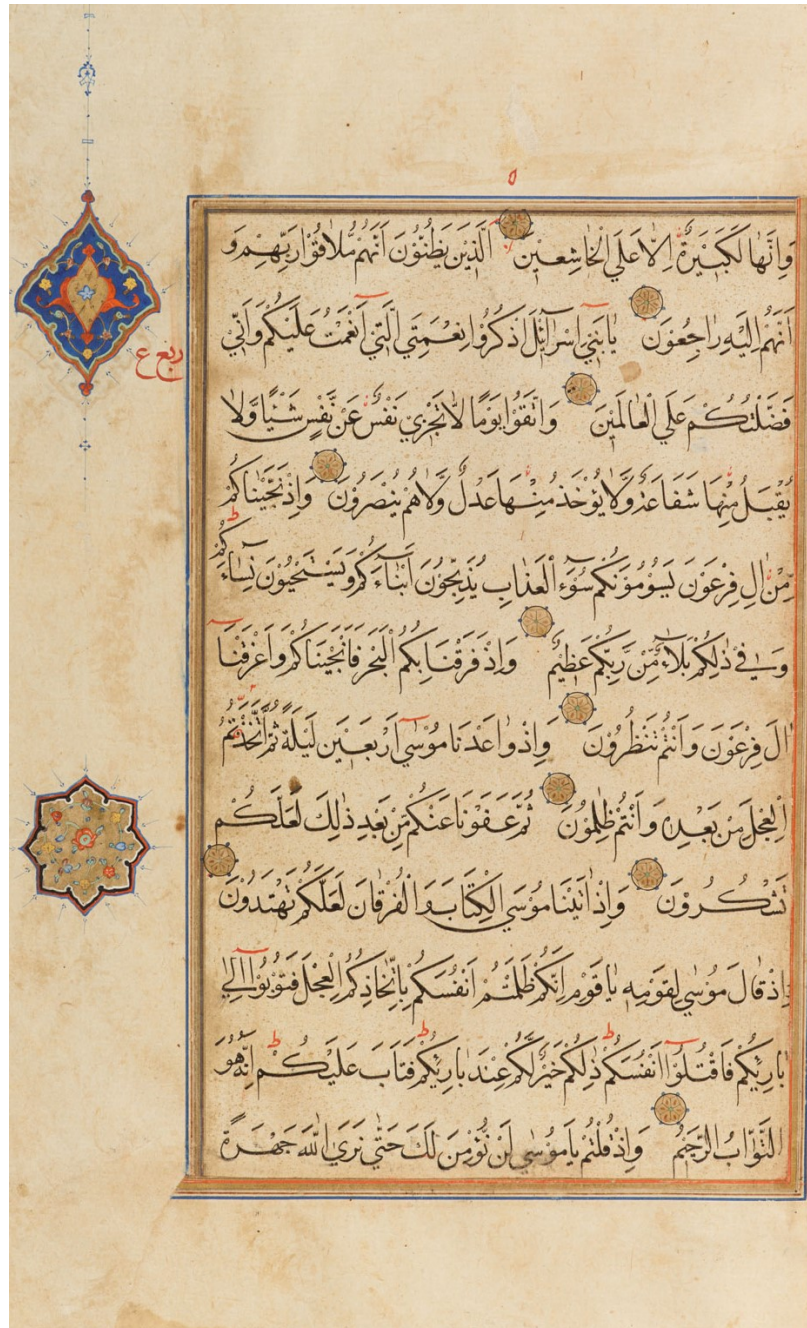 ٥
وَاِنَّهَا لَكَبِيْرَةٌ اِلَّا عَلَي الْخَاشِعِيْنَ اَلَّذِيْنَ يَظُنُّوْنَ اَنَّهُمْ مُلَاقُوْا رَبِّهِمْ وَ
اَنَّهُمْ اِلَيْهِ رَاجِعُوْنَ يَا بَنِيْ اِسْرَآئِلَ اذْكُرُوْا نِعْمَتِيَ الَّتِيْ اَنْعَمْتُ عَلَيْكُمْ وَاَنِّيْ
ربع ع
فَضَّلْتُكُمْ عَلَي الْعَالَمِيْنَ وَاتَّقُوْا يَوْمًا لَا تَجْزِيْ نَفْسٌ عَنْ نَفْسٍ شَيْئًا وَّلَا
يُقْبَلُ مِنْهَا شَفَاعَةٌ وَّلَا يُؤْخَذُ مِنْهَا عَدْلٌ وَّلَا هُمْ يُنْصَرُوْنَ وَاِذْ نَجَّيْنَاكُمْ
مِّنْ اٰلِ فِرْعَوْنَ يَسُوْمُوْنَكُمْ سُوْٓءَ الْعَذَابِ يُذَبِّحُوْنَ اَبْنَآءَكُمْ وَيَسْتَحْيُوْنَ نِسَآءَكُمْ ط
وَفِيْ ذٰلِكُمْ بَلَآءٌ مِّنْ رَّبِّكُمْ عَظِيْمٌ وَاِذْ فَرَقْنَا بِكُمُ الْبَحْرَ فَاَنْجَيْنَاكُمْ وَاَغْرَقْنَآ
اٰلَ فِرْعَوْنَ وَاَنْتُمْ تَنْظُرُوْنَ وَاِذْ وَاعَدْنَا مُوْسٰٓي اَرْبَعِيْنَ لَيْلَةً ثُمَّ اتَّخَذْتُمُ
الْعِجْلَ مِنْ بَعْدِهٖ وَاَنْتُمْ ظٰلِمُوْنَ ثُمَّ عَفَوْنَا عَنْكُمْ مِّنْ بَعْدِ ذٰلِكَ لَعَلَّكُمْ
تَشْكُرُوْنَ وَاِذْ اٰتَيْنَا مُوْسَي الْكِتَابَ وَالْفُرْقَانَ لَعَلَّكُمْ تَهْتَدُوْنَ
وَاِذْ قَالَ مُوْسٰي لِقَوْمِهٖ يَا قَوْمِ اِنَّكُمْ ظَلَمْتُمْ اَنْفُسَكُمْ بِاتِّخَاذِكُمُ الْعِجْلَ فَتُوْبُوْٓا اِلٰي
بَارِئِكُمْ فَاقْتُلُوْٓا اَنْفُسَكُمْ ط ذٰلِكُمْ خَيْرٌ لَّكُمْ عِنْدَ بَارِئِكُمْ ط فَتَابَ عَلَيْكُمْ ط اِنَّهٗ هُوَ
التَّوَّابُ الرَّحِيْمُ وَاِذْ قُلْتُمْ يَا مُوْسٰي لَنْ نُّؤْمِنَ لَكَ حَتّٰي نَرَي اللّٰهَ جَهْرَةً